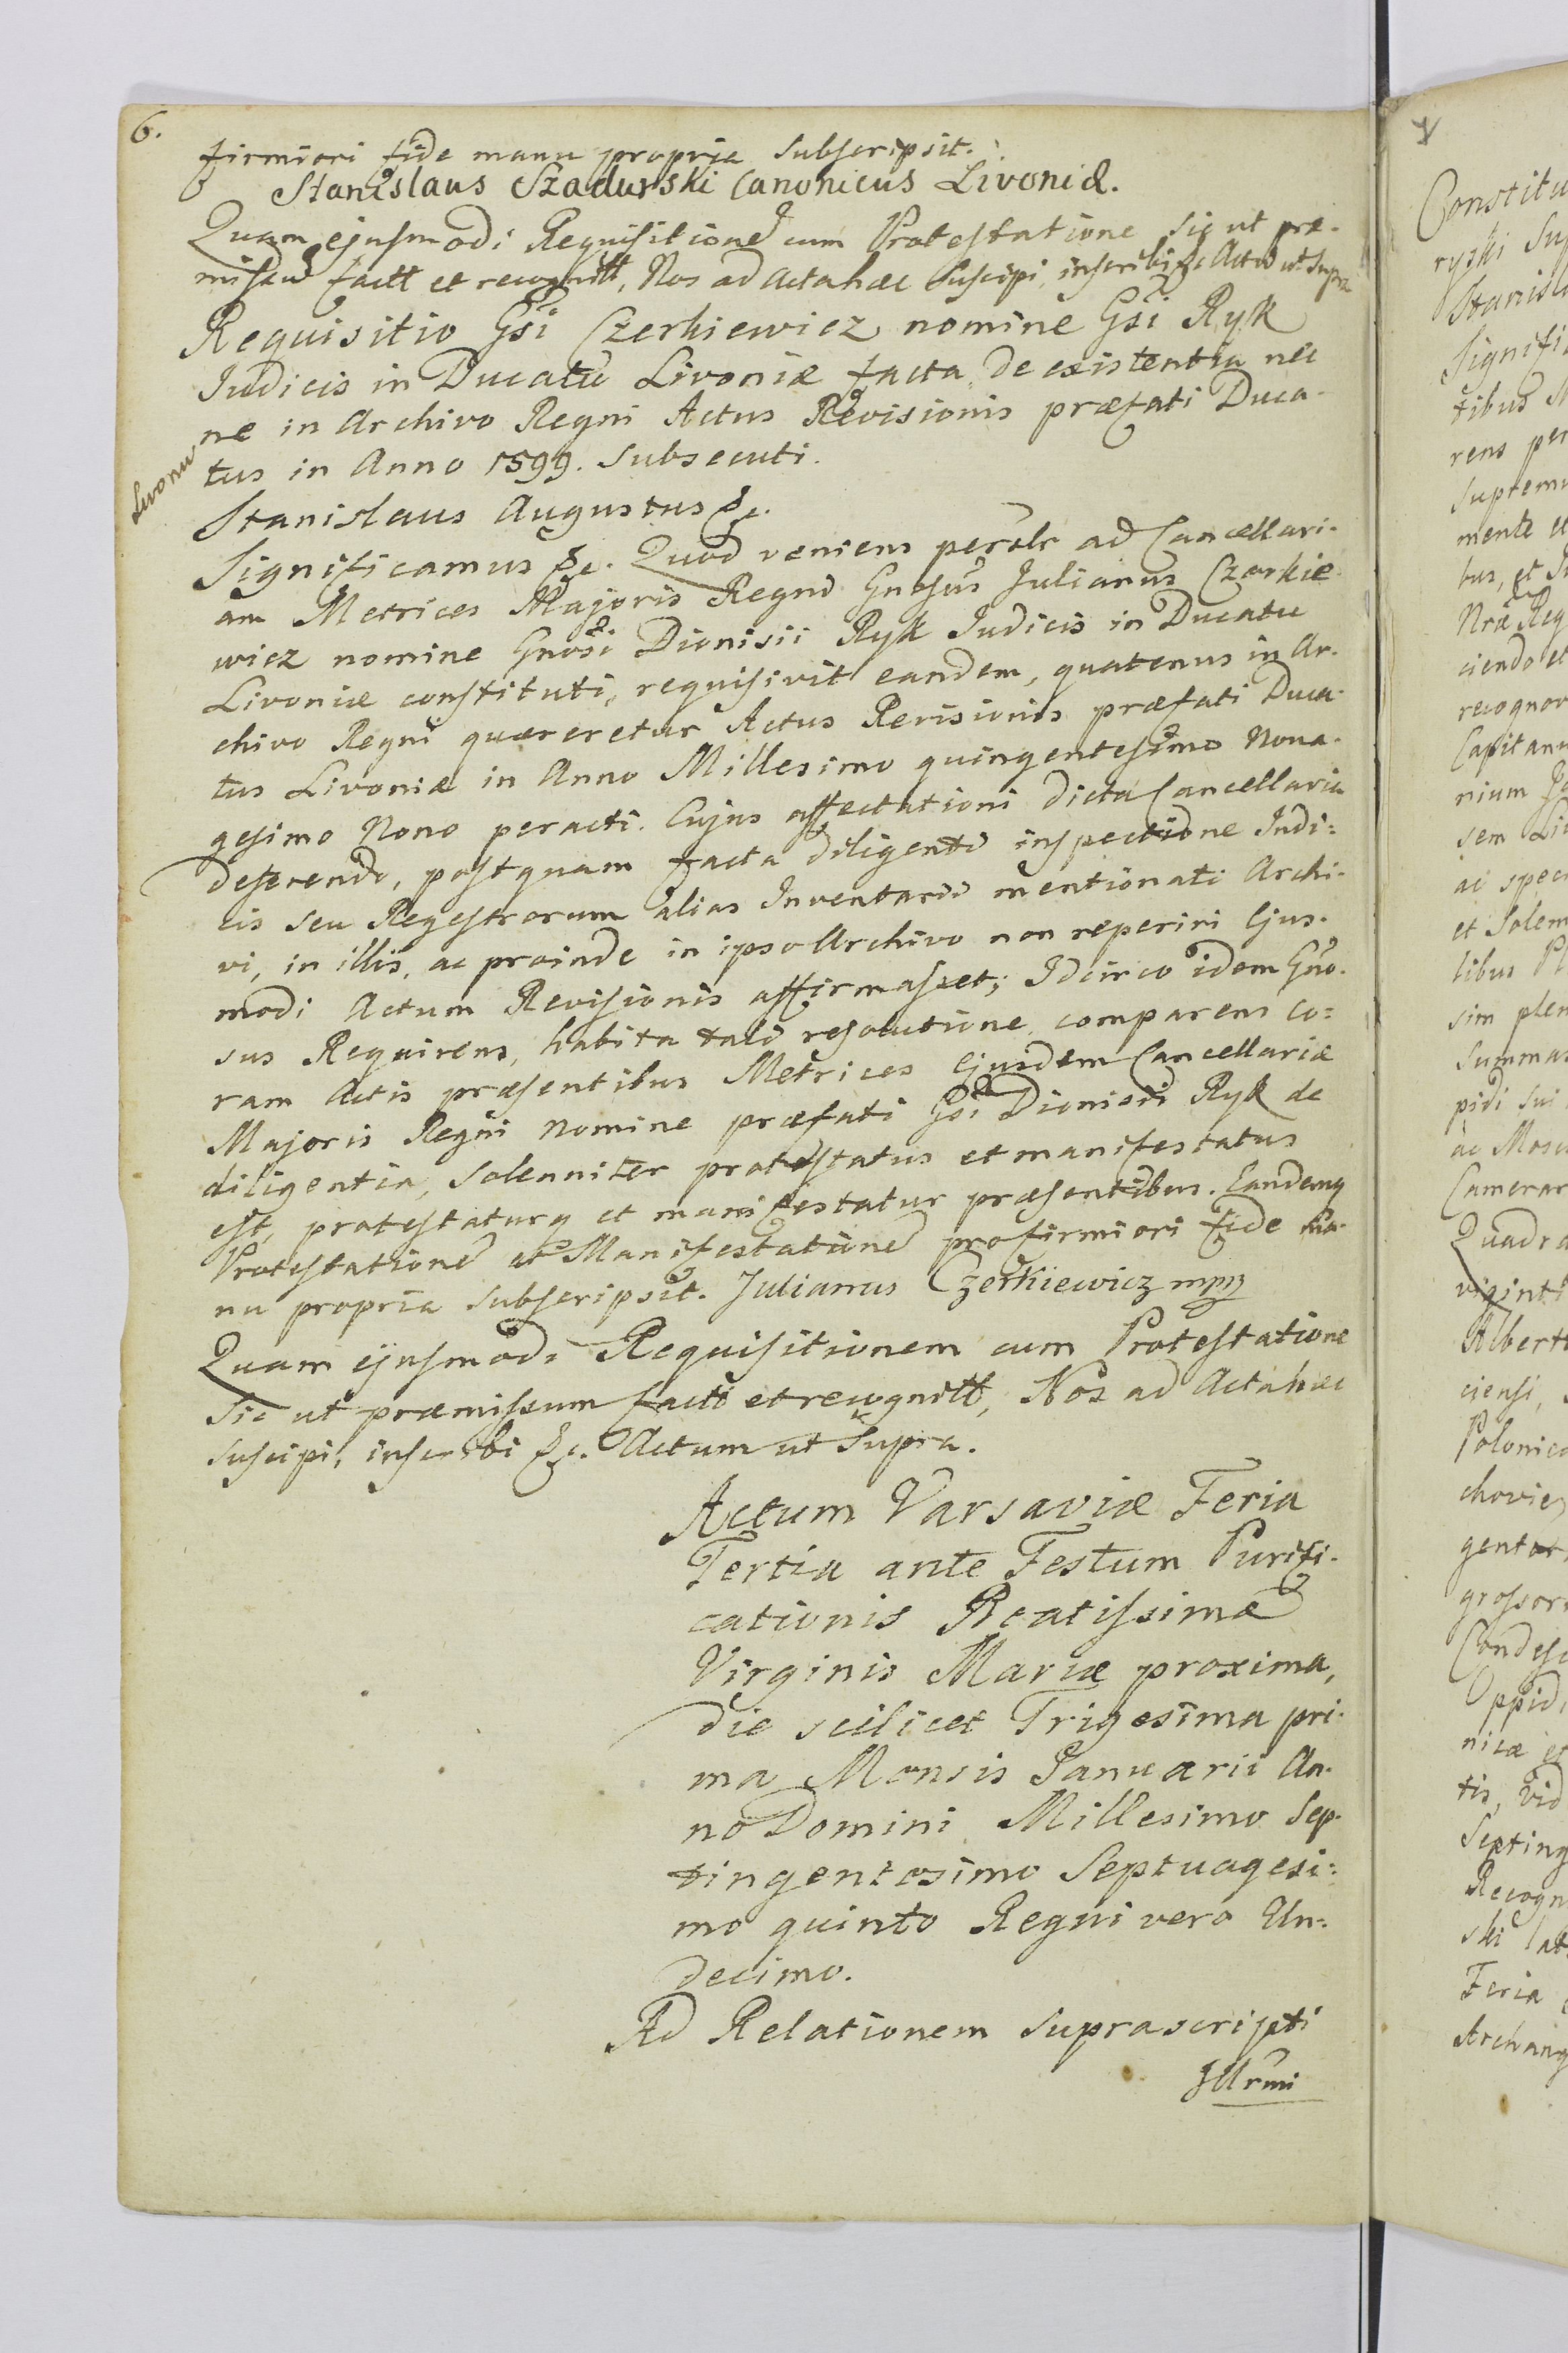 6.
firmiori fide manu propria subscripsit.
Stanislaus Szadurski Canonicus Livoniæ.
Quam ejusmodi Requisitione cum Protestatione sic ut præ-
missum factt et recognitt, Nos ad Acta hæc suscipi, inscribi &c Actu ut supra
Requisitio Gsi Czerkiewicz nomine Gsi Ryk
Judicis in Ducatu Livoniæ facta, de existentia nec
ne in Archivo Regni Actus Revisionis præfati Duca-
tus in Anno 1599. subsecuti.
Livoniæ
Stanislaus Augustus &c.
Significamus &c. Quod veniens persolr ad Cancellari-
am Metrices Majoris Regni Gnosus Julianus Czerkie-
wicz nomine Gnosi Dionisii Ryk Judicis in Ducatu
Livoniæ constituti, requisivit eandem, quatenus in Ar-
chivo Regni quæreretur Actus Revisionis præfati Duca-
tus Livoniæ in Anno Millesimo quingentesimo Nona-
gesimo Nono peracti. Cujus affectationi dicta Cancellaria
deferendo, postquam facta diligenti inspectione Indi=
cis seu Regestrorum alias Inventarii mentionati Archi-
vi, in illis, ac proinde in ipso Archivo non reperiri Ejus-
modi Actum Revisionis affirmasset; Idcirco idem Gno-
sus Requirens, habita tali resolutione, comparens co=
ram Actis præsentibus Metrices Ejusdem Cancellariæ
Majoris Regni nomine præfati Gsi Dionisii Ryk de
diligentia, solenniter protestatus et manifestatus
est, protestaturq et manifestatur præsentibus. Eandemq
Protestatione et Manifestatione pro firmiori fide ma-
nu propria subscripsit. Julianus Czerkiewicz mpp
Quam ejusmodi Requisitionem cum Protestatione
sic ut præmissum factt et recognitt, Nos ad Acta hæc
suscipi, inscribi &c. Actum ut supra.
Actum Varsaviæ Feria
Tertia ante Festum Purifi-
cationis Beatissimæ
Virginis Mariæ proxima,
die scilicet Trigesima pri-
ma Mensis Januarii An-
no Domini Millesimo Sep-
tingentesimo Septuagesi=
mo quinto Regni vero Un-
decimo.
Ad Relationem suprascripti
Illrmi
Constitu
ryski Sup
Stanisla
Signifi
tibus
rens per
Supremu
mente et
bus, et
Nræ Reg
ciendo et
recognov
Capitanu
nium
sem Liv
ac speci
et solem
libus
sim plen
Summas
pidi sui
ac
Camerar
Quadra
viginti
Albert
ciensi,
Polonica
chovie
gentor
grossor
Condesc
Oppid
nicæ et
tis, Vid
Septing
Recogn
ski
Feria
Archang